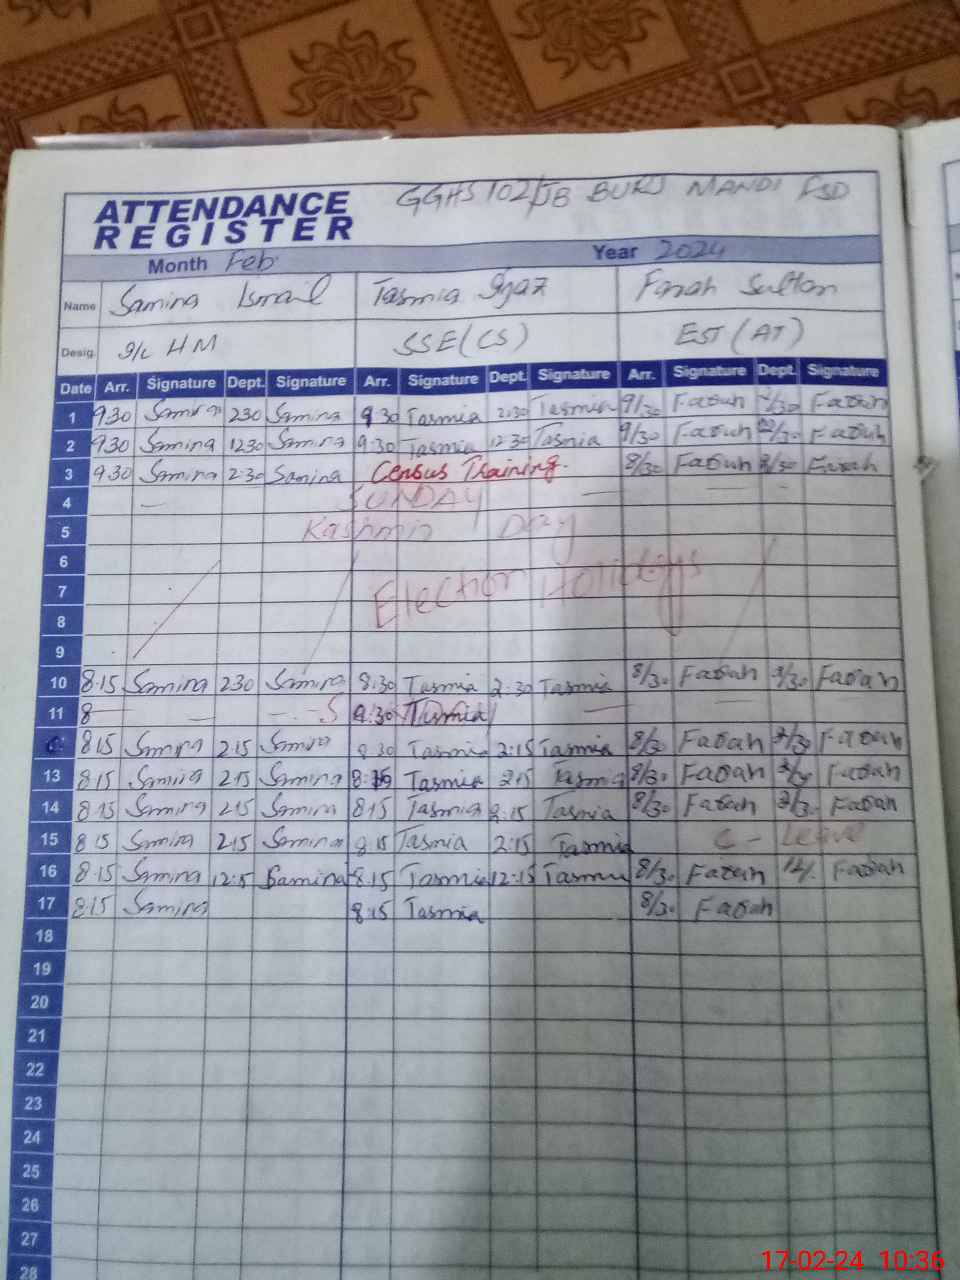 ATTENDANCE REGISTER GGHS 102/JB BURJ MANDI FSD
Month Feb Year 2024
Name Samina Ismail Tasmia Ijaz Farah Sultan
Desig. I/C HM SSE(CS) EST (AT)
Date Arr. Signature Dept. Signature Arr. Signature Dept. Signature Arr. Signature Dept. Signature
1 9:30 Samina 2:30 Samina 9:30 Tasmia 2:30 Tasmia 9/30 Farah 2/30 Farah
2 9:30 Samina 12:30 Samina 9:30 Tasmia 12:30 Tasmia 9/30 Farah 12/30 Farah
3 9:30 Samina 2:30 Samina Census Training. 8/30 Farah 2/30 Farah
4 SUNDAY
5 Kashmir Day
6
7 Election Holidays
8
9
10 8:15 Samina 2:30 Samina 8:30 Tasmia 2:30 Tasmia 8/30 Farah 2/30 Farah
11 8
8:15 Samina 2:15 Samina 8:30 Tasmia 2:15 Tasmia 8/30 Farah 2/30 Farah
13 8:15 Samina 2:15 Samina Tasmia 2:15 Tasmia 8/30 Farah Farah
14 8:15 Samina 2:15 Samina 8:15 Tasmia 2:15 Tasmia 8/30 Farah 2/30 Farah
15 8:15 Samina 2:15 Samina 8:15 Tasmia 2:15 Tasmia C - Leave
16 8:15 Samina 12:15 Samina 8:15 Tasmia 12:15 Tasmia 8/30 Farah 12/ Farah
17 8:15 Samina 8:15 Tasmia 8/30 Farah
18
19
20
21
22
23
24
25
26
27
28
17-02-24 10:36